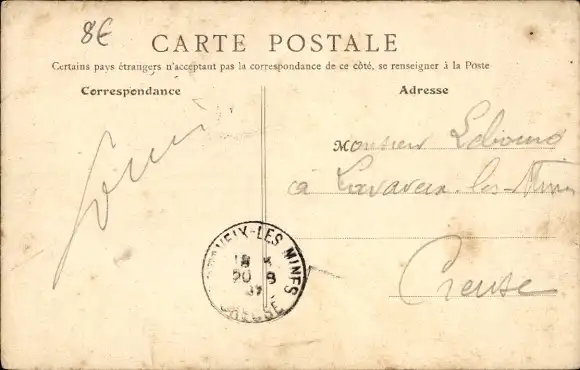 8€
CARTE POSTALE
Certains pays étrangers n'acceptant pas la correspondance de ce côté, se renseigner à la Poste
Correspondance
Adresse
Monsieur
à Lavaveix-les-Mines
Creuse
VEIX-LES MINES
20 8
CREUSE